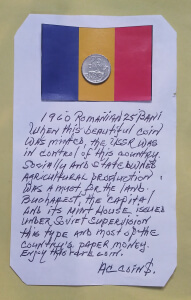 1960 ROMANIAN 25 BANI
WHEN THIS BEAUTIFUL COIN
WAS MINTED, THE USSR WAS
IN CONTROL OF THIS COUNTRY.
SOCIALLY AND STATE OWNED
AGRICULTURAL PRODUCTION
WAS A MUST FOR THE LAND.
BUCHAREST, THE CAPITAL
AND ITS MINT HOUSE ISSUED
UNDER SOVIET SUPERVISION
THIS TYPE AND MOST OF THE
COUNTRY'S PAPER MONEY.
ENJOY THIS RARE COIN.
AC COIN$.